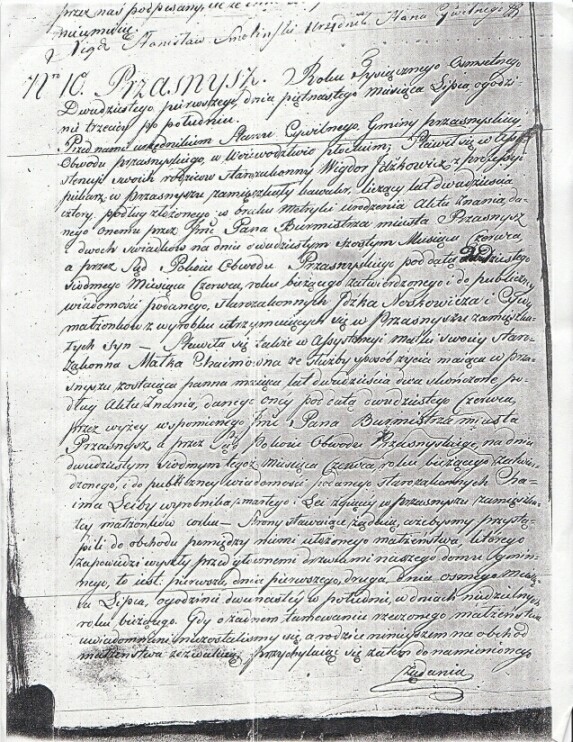 przez nas podpisany,
nieumieią.
Xiądz Stanisław Smoliński Urzędnik Stanu Cywilnego
Nro 10. Przasnysz. Roku Tysiącznego Osmsetnego
Dwudziestego pierwszego, dnia piętnastego Miesiąca Lipca, o godzi
nie trzeciey po południu.
Przed nami urzędnikiem Stanu Cywilnego, Gminy przasnyskiey
Obwodu przasnyskiego, w Woiewodztwie Płockim; Stawił się w Assy
stencyi swoich rodziców Starozakonny Wigdor Jckowicz z professyi
piekarz, w przasnyszu zamięszkały kawaler, liczący lat dwadziescia
cztery, podług złożonego w braku Metryki urodzenia Aktu Znania da-
nego onemu przez Jmci Pana Burmistrza miasta Przasnysz
i dwoch swiadków na dniu dwudziestym szostym Miesiąca Czerwca
a przez Sąd Policyi Obwodu Przasnyskiego pod datą dwudziestego
siodmego Miesiąca Czerwca, roku bieżącego zatwierdzonego i do publiczney
wiadomości podanego, starozakonnych Jcka Noskowicza i
małżonków z wyrobku utrzymuiących się w Przasnyszu zamięszka-
łych syn – Stawiła się także w Assystencyi matki swoiey Staro-
zakonna Matka Chaimówna ze służby sposób życia maiąca w prza-
snyszu zostaiąca panna maiąca lat dwadziescia dwa skończone po-
dług Aktu Znania, danego oney pod datą dwudziestego Czerwca,
przez wyżey wspomnionego Jmci Pana Burmistrza miasta
Przasnysz, a przez Sąd Policyi Obwodu Przasnyskiego, na dniu
dwudziestym siodmym tegoż miesiąca Czerwca, roku bieżącego zatwier-
dzonego, i do publiczney wiadomości podanego starozakonnych Cha-
ima Leiby wyrobnika zmarłego i Lei w przasnyszu zamięszka-
łey małżonków corka – Strony stawaiące żądaią, ażebyśmy przystą-
pili do obchodu pomiędzy niemi ułożonego małżeństwa, którego
zapowiedzi wyszły przed głownemi drzwiami naszego domu Gmin-
nego, to iest: pierwsza, dnia pierwszego, druga, dnia osmego Miesią-
ca Lipca, o godzinie dwunastey w południe, w dniach niedzielnych
roku bieżącego. Gdy o żadnem tamowaniu rzeczonego małżeństwa
uwiadomieni niezostaliśmy się, a rodzice ninieyszem na obchod
małżeństwa zezwalaią, przychylaiąc się zatem do namienionego
żądania